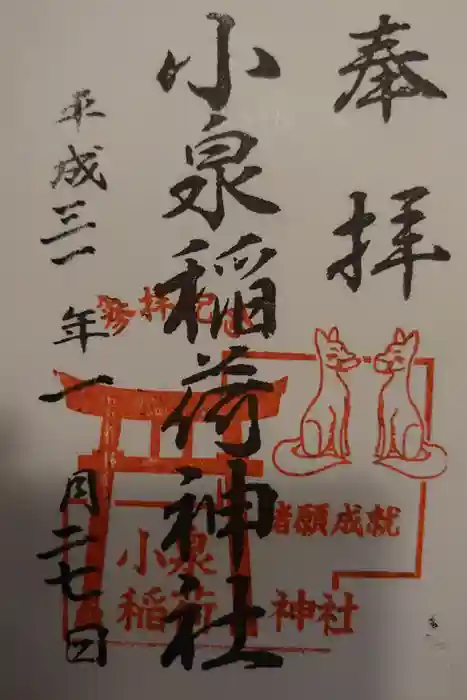 奉拝
小泉稲荷神社
平成三一年一月二七日
参拝記念
諸願成就
小泉
稲荷神社